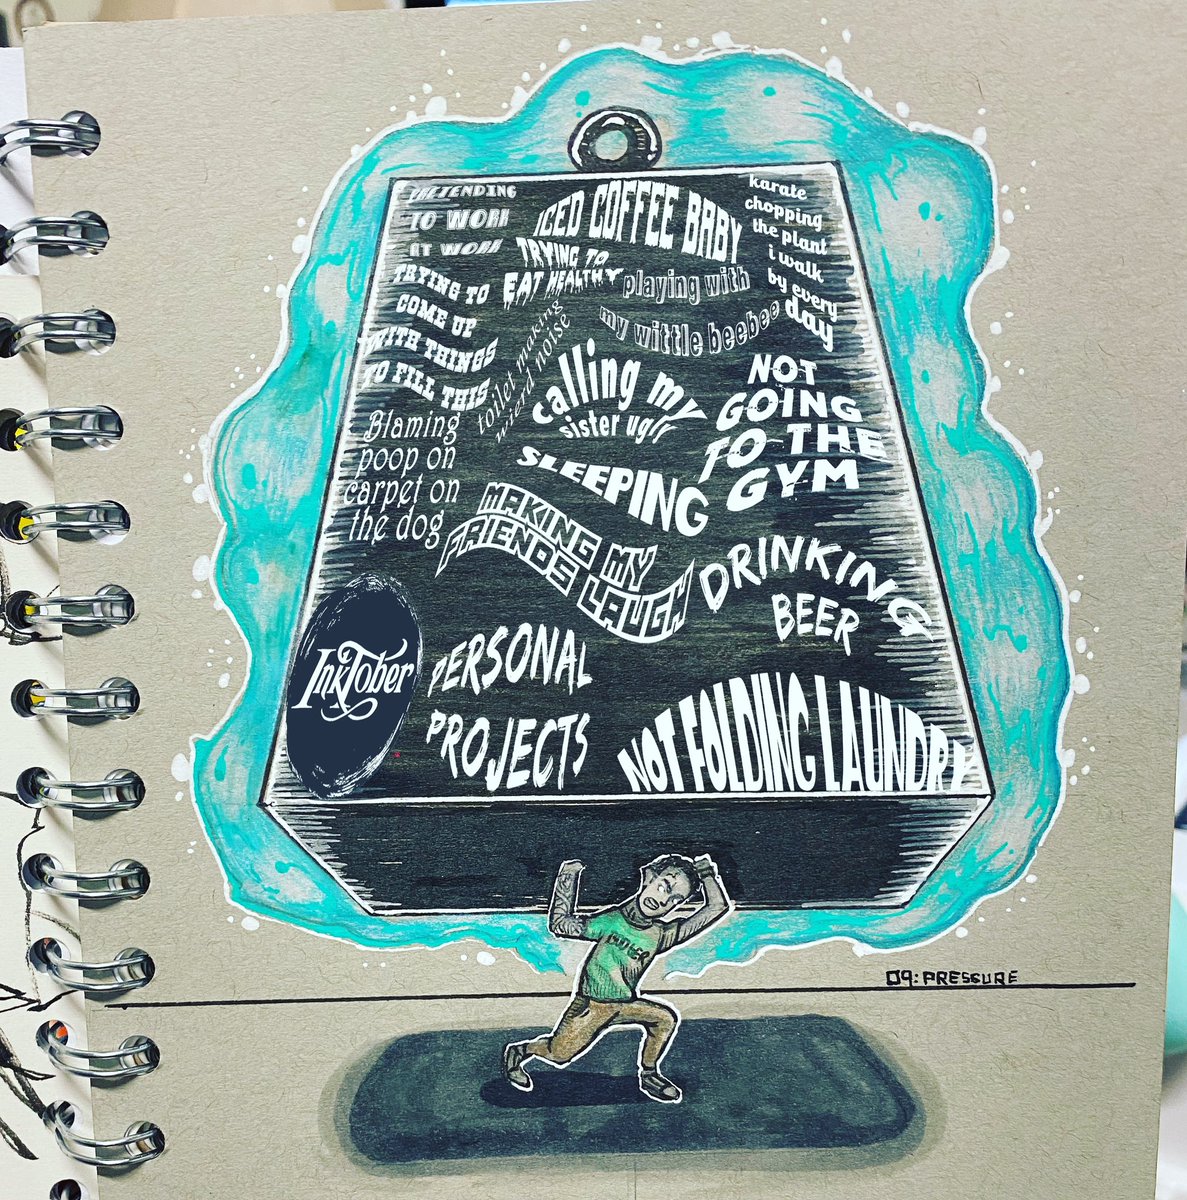 PRETENDING
TO WORK
AT WORK
ICED COFFEE BABY
karate
chopping
the plant
i walk
by every
day
TRYING TO
EAT HEALTHY
playing with
my wittle beebee
TRYING TO
COME UP
WITH THINGS
TO FILL THIS
toilet making
wierd noise
calling my
sister ugly
NOT
GOING
TO THE
GYM
Blaming
poop on
carpet on
the dog
SLEEPING
MAKING MY
FRIENDS LAUGH
DRINKING
BEER
InkTober
PERSONAL
PROJECTS
NOT FOLDING LAUNDRY
09: PRESSURE